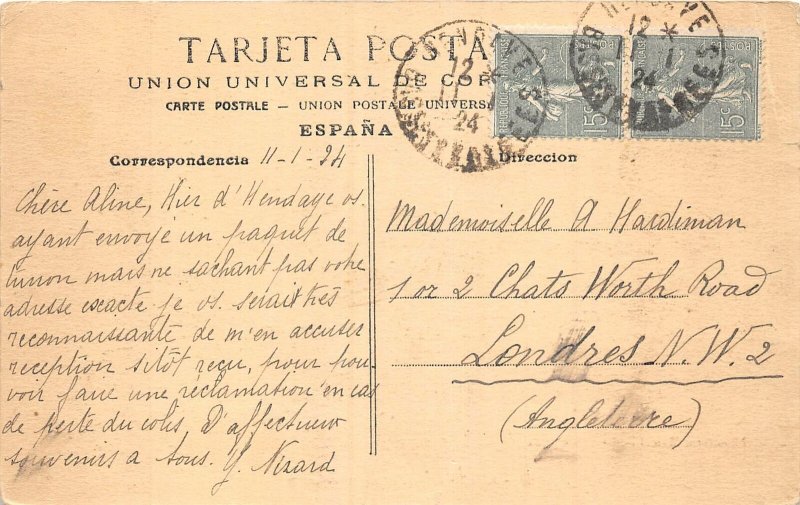 TARJETA POSTA
UNION UNIVERSAL DE COR
CARTE POSTALE — UNION POSTALE UNIVERS
ESPAÑA
Correspondencia 11-1-24
Direccion
Chère Aline, Hier d'Hendaye vs.
ayant envoyé un paquet de
mais ne sachant pas votre
adresse exacte je vs. serait très
reconnaissante de m'en accuser
reception sitôt reçu, pour pou-
voir faire une reclamation en cas
de perte du colis, D'affectueux
souvenirs a tous. Y. Nizard
Mademoiselle A Hardiman
1 or 2 Chats Worth Road
Londres N.W.2
(Angleterre)
HENDAYE
12 *
11 - 1
24
BSES PYRENEES
15c
15c